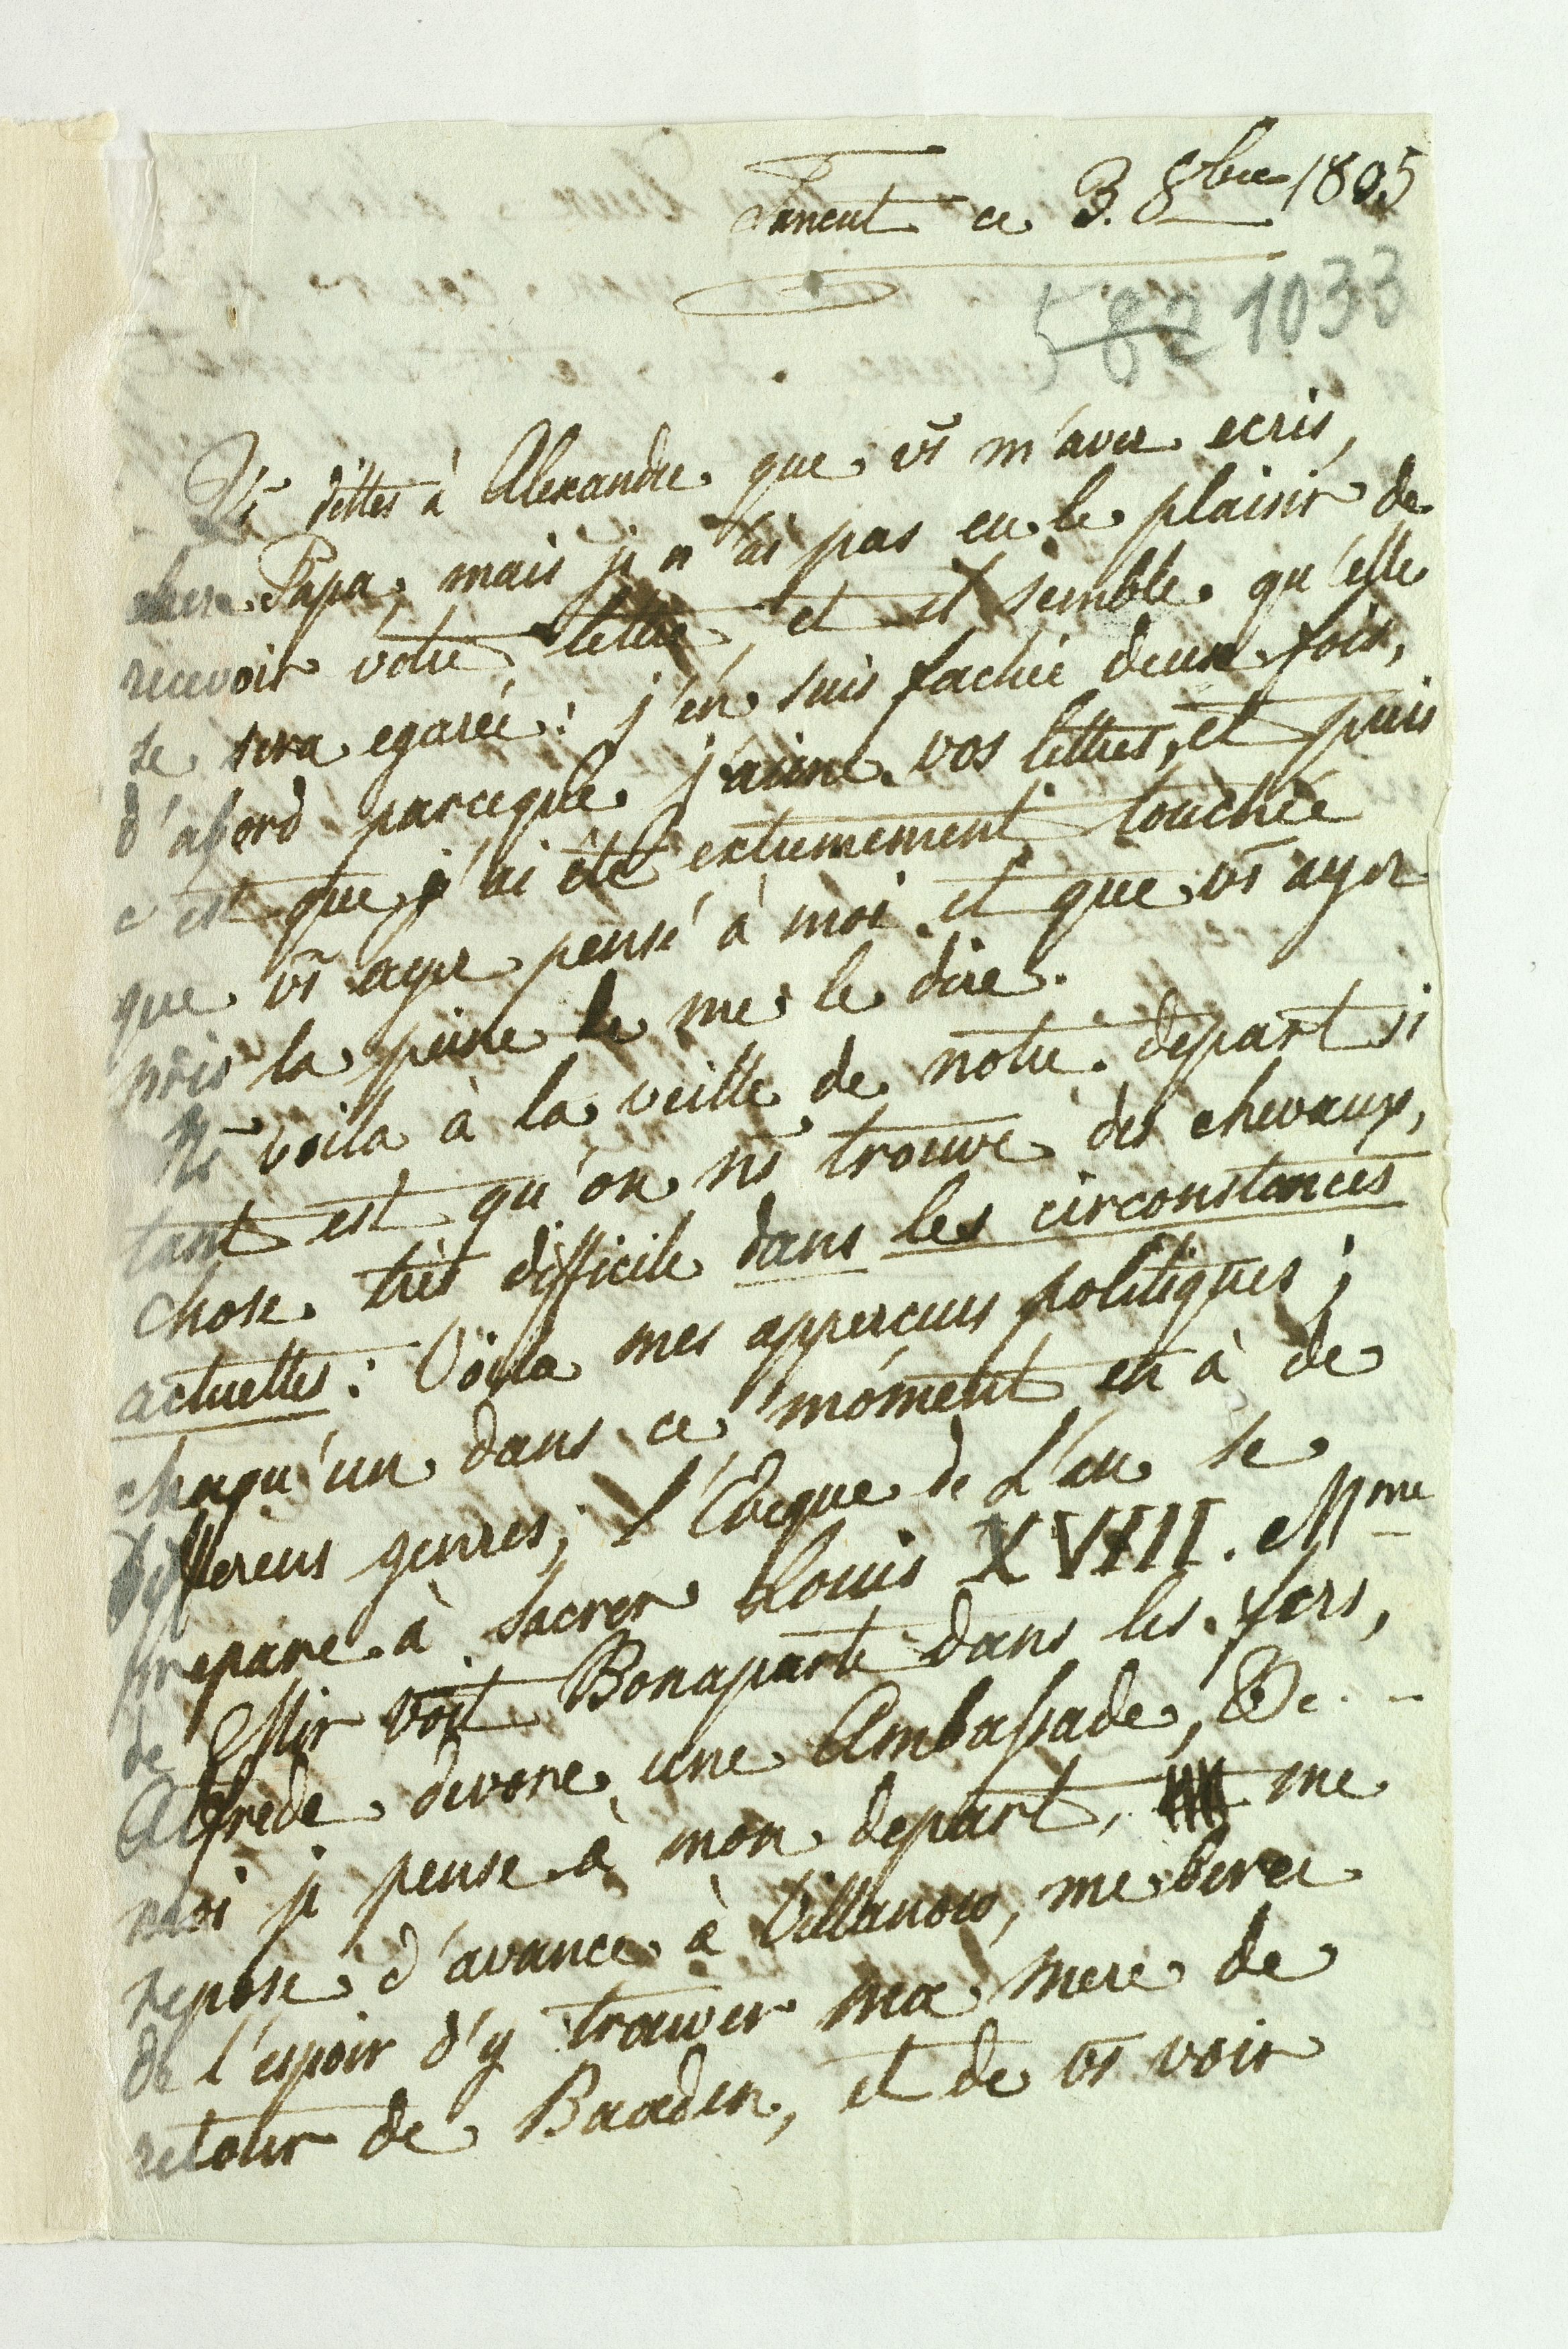 Lancut ce 3. 8bre 1805
582 1033
Vs dittes à Alexandre que vs m'avez ecris,
cher Papa, mais je n'ai pas eu le plaisir de
recevoir votre lettre, et il semble qu'elle
se sera egareé: j'en suis fachée deux fois,
d'abord parceque j'aime vos lettres, et puis
c'est que j'ai été extremement touchée
que vs ayez pensé à moi et que vs ayez
pris la peine de me le dire.
Ns voila à la veille de notre depart si
tant est qu'on ns trouve des chevaux,
chose très difficile dans les circonstances
actuelles: Voila mes apperçus politiques;
chaqu'un dans ce moment en à de
differens genres; l'Eveque de L'an se
prepare à sacrer Louis XVIII. Mme
de Mir voit Bonaparte dans les fers,
Alfrede devore une Ambassade, &c. -
moi je pense à mon depart, me
repose d'avance à Villanow, me berce
de l'espoir d'y trouver ma mere de
retour de Baaden, et de vs voir